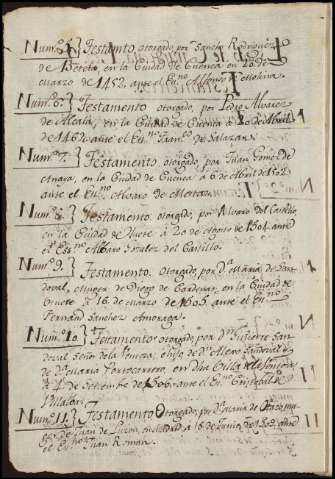 Testamento, otorgado por Sancho Rodriguez
de en la Ciudad de Cuenca en 20 de
Marzo de 1452. ante el Esno. Alfonso de Molina.
Num.º 6.º Testamento otorgado, por Pedro Alvarez
de Alcalá, en la Ciudad de Cuenca a de Abril
de 146 ante el Esno. de Salazar.
Num.º 7. Testamento, otorgado por Juan
Anaya, en la Ciudad de Cuenca a 6 de Abril de 1502
ante el Esno. Alvaro de
Num.º 8. Testamento otorgado, por Alvaro del Castillo,
en la Ciudad de Huete a 20 de Agosto de 1504 ante
el Esno. Alvaro del Castillo.
Num.º 9.
Testamento, Otorgado por D.ª Maria de San-
doval, Muger de Diego de Cardenas, en la Ciudad de
Huete a 16 de Marzo de 1605 ante el Esno.
Fernan Sanchez
Num.º 10.
Testamento otorgado, por Dn. Gutierre San-
doval Señor de la hijo de Dn. Alvaro Sandoval y
de D.ª Maria Portocarrero, en
a 4 de Setiembre de 1506 ante el Esno. Cristobal de
Villacas
Num.º 11. Testamento Otorgado, por D.ª Maria de
de Juan de Luzon, en Madrid, a 16 de Junio de ante
el Esno. Juan Roman.